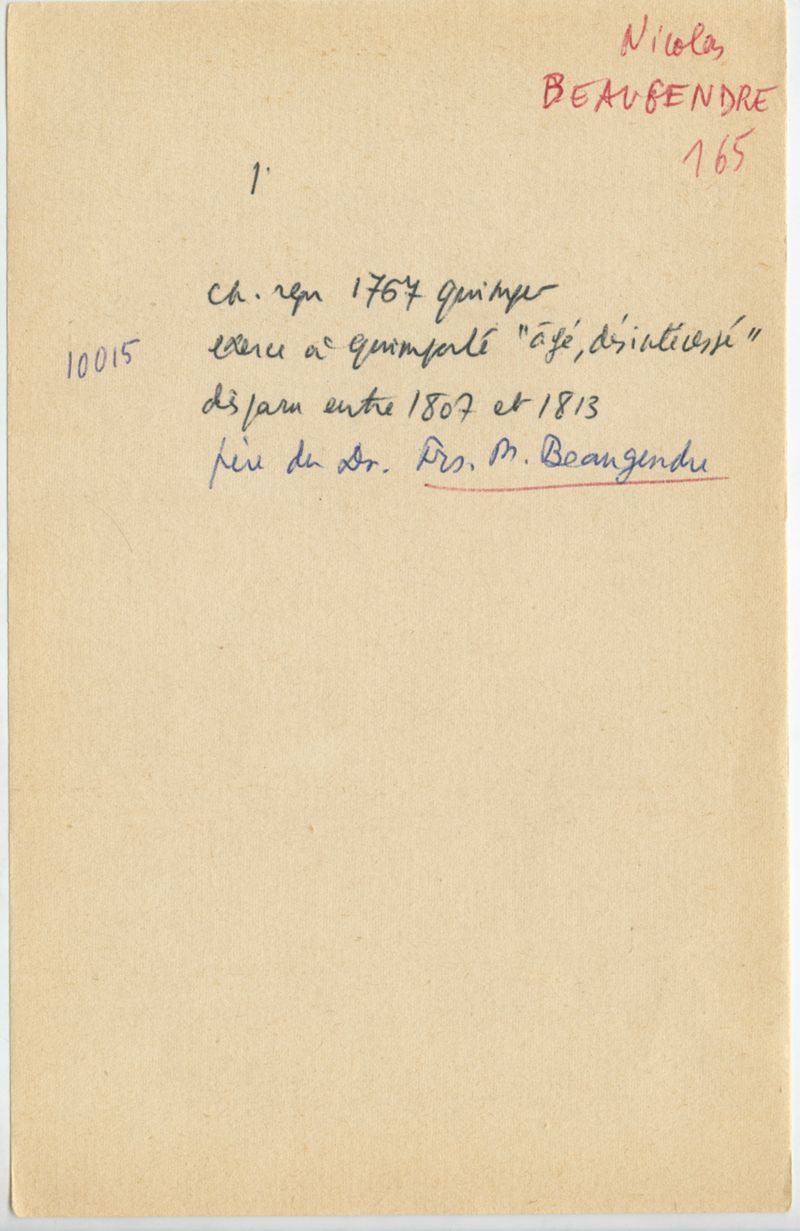 Nicolas
BEAUGENDRE
165
1
ch. reçu 1767 Quimper
10015
exerce à Quimperlé "âgé, désintéressé"
disparu entre 1807 et 1813
père du Dr. Frs. M. Beaugendre